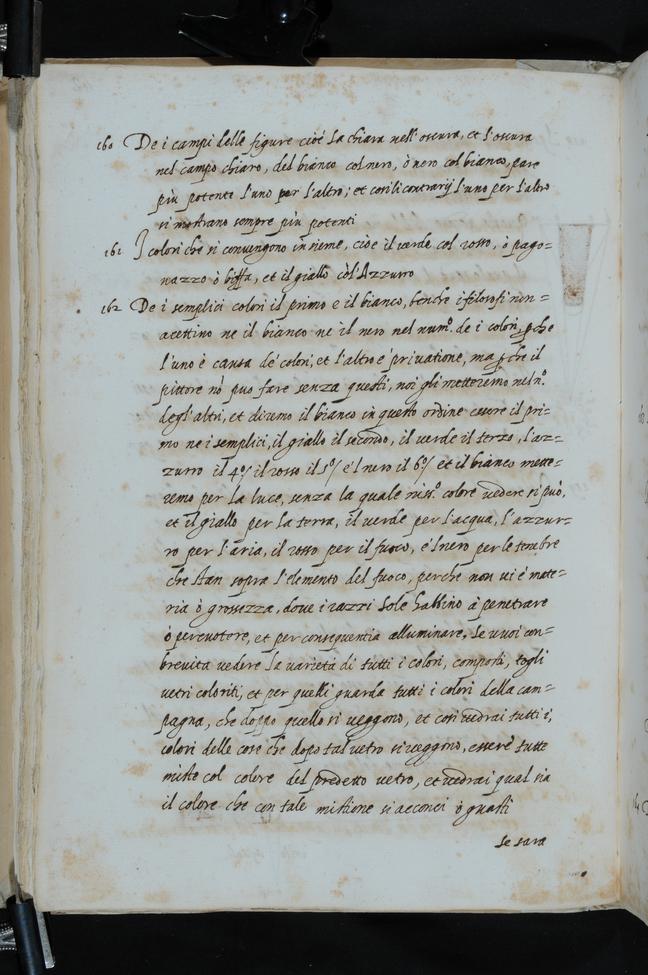 160 De i campi delle figure cioè la chiara nell'oscura, et l'oscura
nel campo chiaro, del bianco col nero, ò nero col bianco, pare
più potente l'uno per l'altro; et così li contrarij l'uno per l'altro
si mostrano sempre più potenti
161 I colori che si convengono insieme, cioè il verde col rosso, ò pago=
nazzo ò biffa, et il giallo còl'Azzurro
162 De i semplici colori il primo e il bianco, benche i filosofi non=
acettino ne il bianco ne il nero nel num.º de i colori, p che
l'uno è causa de' colori, et l'altro è privatione, ma p che il
pittore nò puo fare senza questi, noi gli metteremo nel n.º
degl'altri, et diremo il bianco in questo ordine essere il pri=
mo ne i semplici, il giallo il secondo, il verde il terzo, l'az=
zurro il 4º/ il rosso il 5º/ e'l nero il 6º/ et il bianco mette=
remo per la luce, senza la quale niss.º colore vedere si può,
et il giallo per la terra, il verde per l'acqua, l'azzur=
ro per l'aria, il rosso per il fuoco, e'l nero per le tenebre
che stan sopra l'elemento del fuoco, perche non vi è mate=
ria ò grossezza, dove i razzi Sole habbino à penetrare
ò percuotere, et per consequentia alluminare. Se vuoi con=
brevita vedere la varietà di tutti i colori, composti, togli
vetri coloriti, et per quelli guarda tutti i colori della cam=
pagna, che doppo quello si veggono, et così vedrai tutti i,
colori delle cose che dopo tal vetro si veggono, essere tutte
miste col colore del predetto vetro, et vedrai qual sia
il colore che con tale mistione si acconci ò guasti
se sara